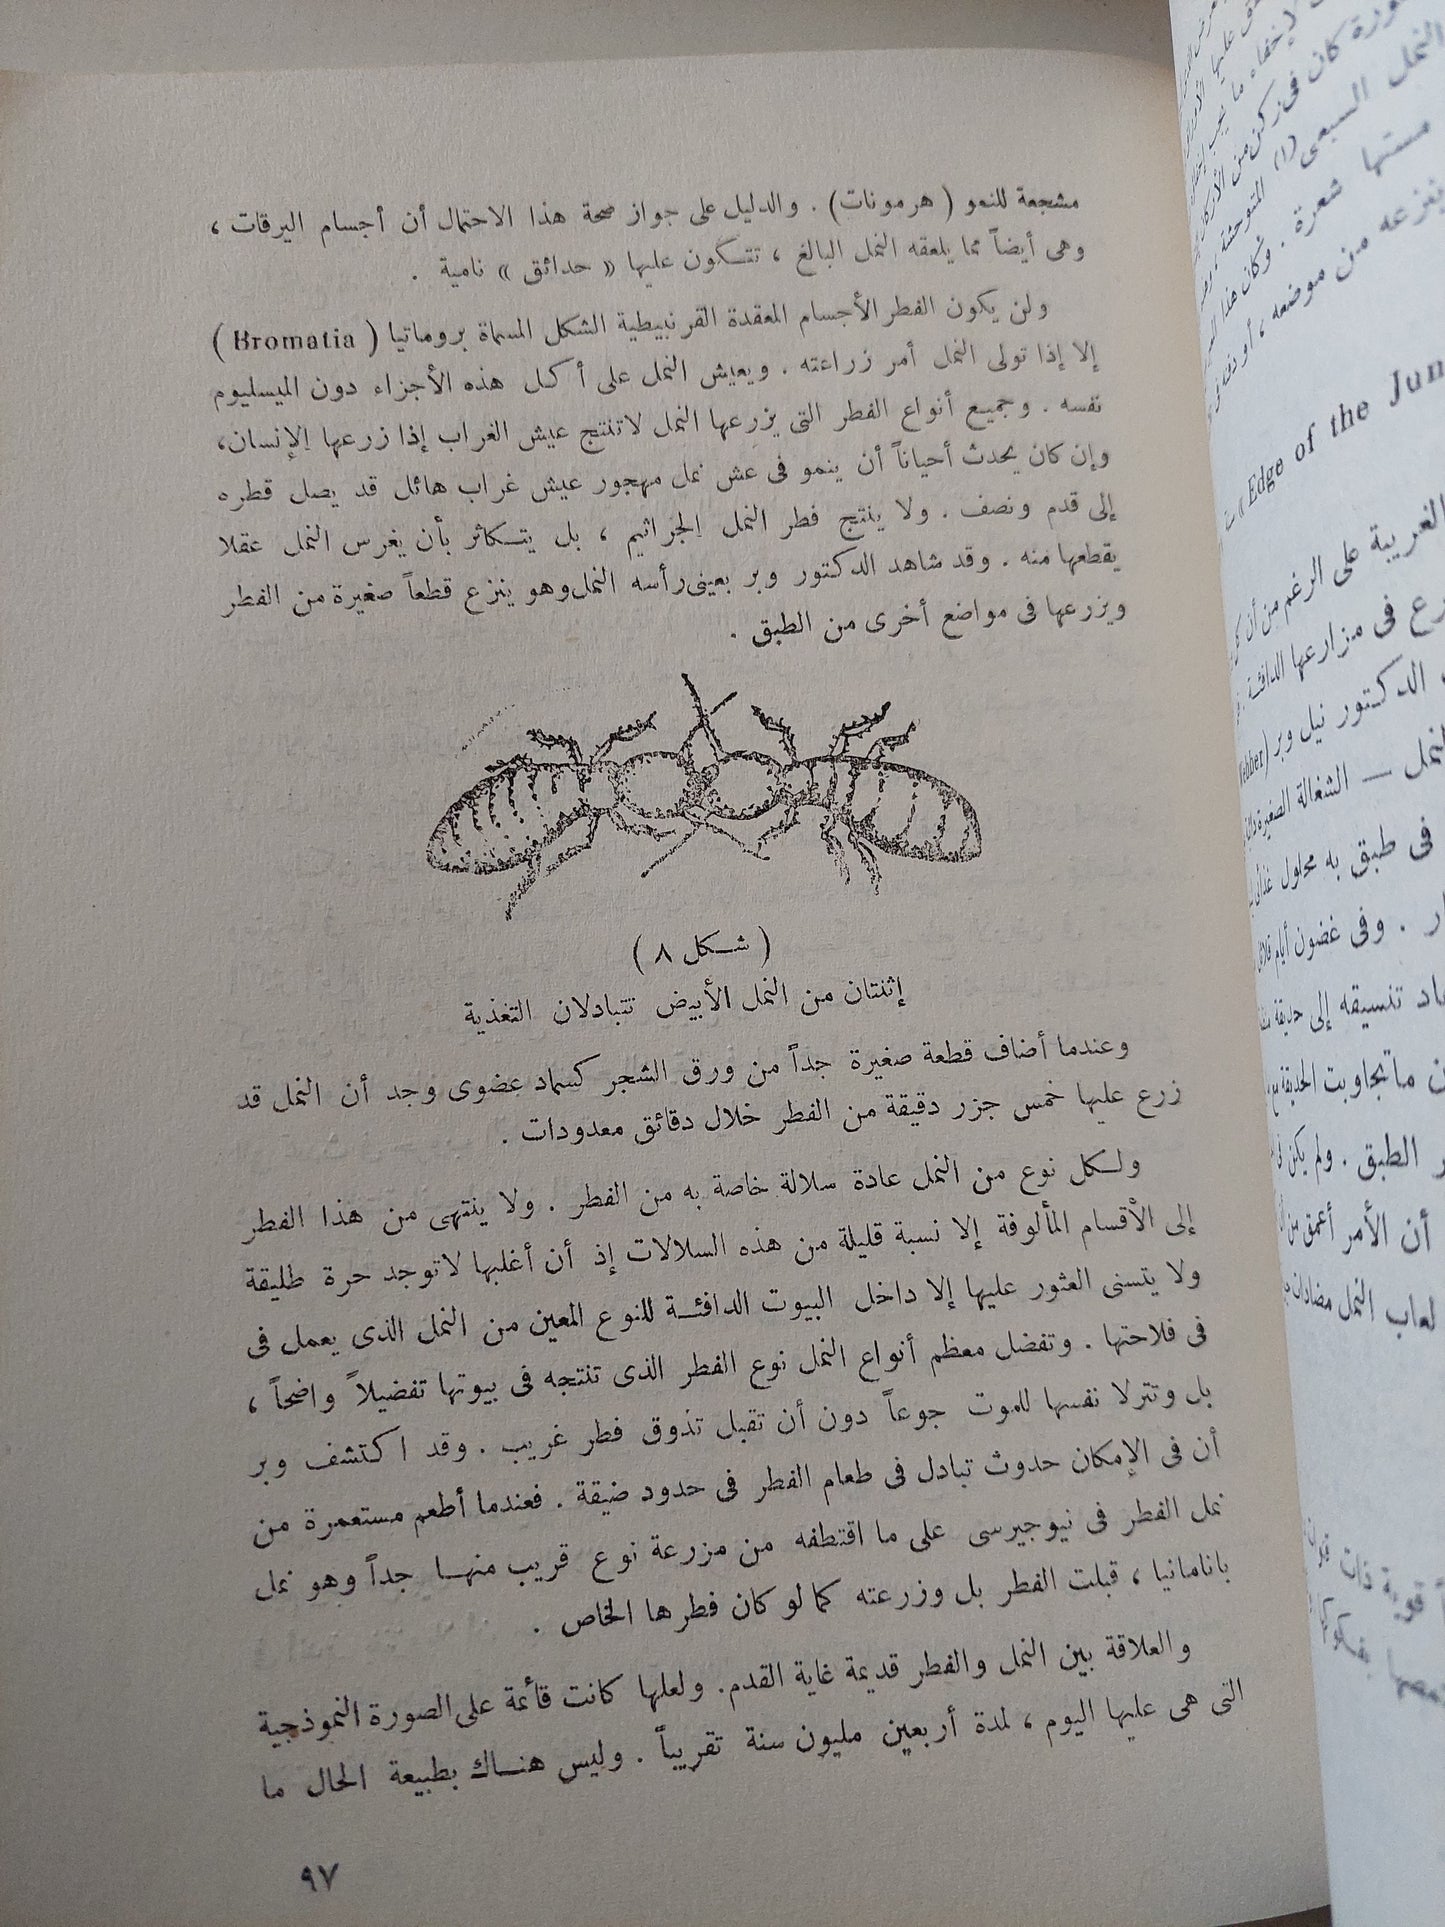 مشجعة للنمو ( هرمونات ) . والدليل على جواز صحة هذا الاحتمال أن أجسام اليرقات ،
وهى أيضاً مما يلعقه النمل البالغ ، تتكون عليها « حدائق » نامية .
ولن يكون الفطر الأجسام المعقدة القرنبيطية الشكل المسماة بروماتيا ( Bromatia )
إلا إذا تولى النمل أمر زراعته . ويعيش النمل على أكل هذه الأجزاء دون الميسليوم
نفسه . وجميع أنواع الفطر التى يزرعها النمل لا تنتج عيش الغراب إذا زرعها الإنسان،
وإن كان يحدث أحياناً أن ينمو فى عش نمل مهجور عيش غراب هائل قد يصل قطره
إلى قدم ونصف . ولا ينتج فطر النمل الجراثيم ، بل يتكاثر بأن يغرس النمل عقلا
يقطعها منه . وقد شاهد الدكتور وبر بعينى رأسه النمل وهو ينزع قطعاً صغيرة من الفطر
ويزرعها فى مواضع أخرى من الطبق .
( شكل ٨ )
إثنتان من النمل الأبيض تتبادلان التغذية
وعندما أضاف قطعة صغيرة جداً من ورق الشجر كسماد عضوى وجد أن النمل قد
زرع عليها خمس جزر دقيقة من الفطر خلال دقائق معدودات .
ولكل نوع من النمل عادة سلالة خاصة به من الفطر . ولا ينتهى من هذا الفطر
إلى الأقسام المألوفة إلا نسبة قليلة من هذه السلالات إذ أن أغلبها لا توجد حرة طليقة
ولا يتسنى العثور عليها إلا داخل البيوت الدافئة للنوع المعين من النمل الذى يعمل فى
فى فلاحتها . وتفضل معظم أنواع النمل نوع الفطر الذى تنتجه فى بيوتها تفضيلاً واضحاً ،
بل وتترك نفسها للموت جوعاً دون أن تقبل تذوق فطر غريب . وقد اكتشف وبر
أن فى الإمكان حدوث تبادل فى طعام الفطر فى حدود ضيقة . فعندما أطعم مستعمرة من
نمل الفطر فى نيوجيرسى على ما اقتطفه من مزرعة نوع قريب منها جداً وهو نمل
بانامانيا ، قبلت الفطر بل وزرعته كما لو كان فطرها الخاص .
والعلاقة بين النمل والفطر قديمة غاية القدم. ولعلها كانت قائمة على الصورة النموذجية
التى هى عليها اليوم ، لمدة أربعين مليون سنة تقريباً . وليس هناك بطبيعة الحال ما
٩٧
لإخفاء ما يجب
صورة كان فى ركن من الأركان
النمل السبعى (١) المتوحشة
مستها شعرة . وكان هذا
ينزعه من موضعه ، أو
« Edge of the Jun
الغريبة على الرغم من أن
فى مزارعها الدافئة
الدكتور نيل وبر
النمل — الشغالة الصغيرة
فى طبق به محلول غذائى
. وفى غضون أيام
تنسيقه إلى حديقة
ما تجاوبت الحديقة
الطبق . ولم يكن
أن الأمر أعمق من
لعاب النمل مضادات
قوية ذات